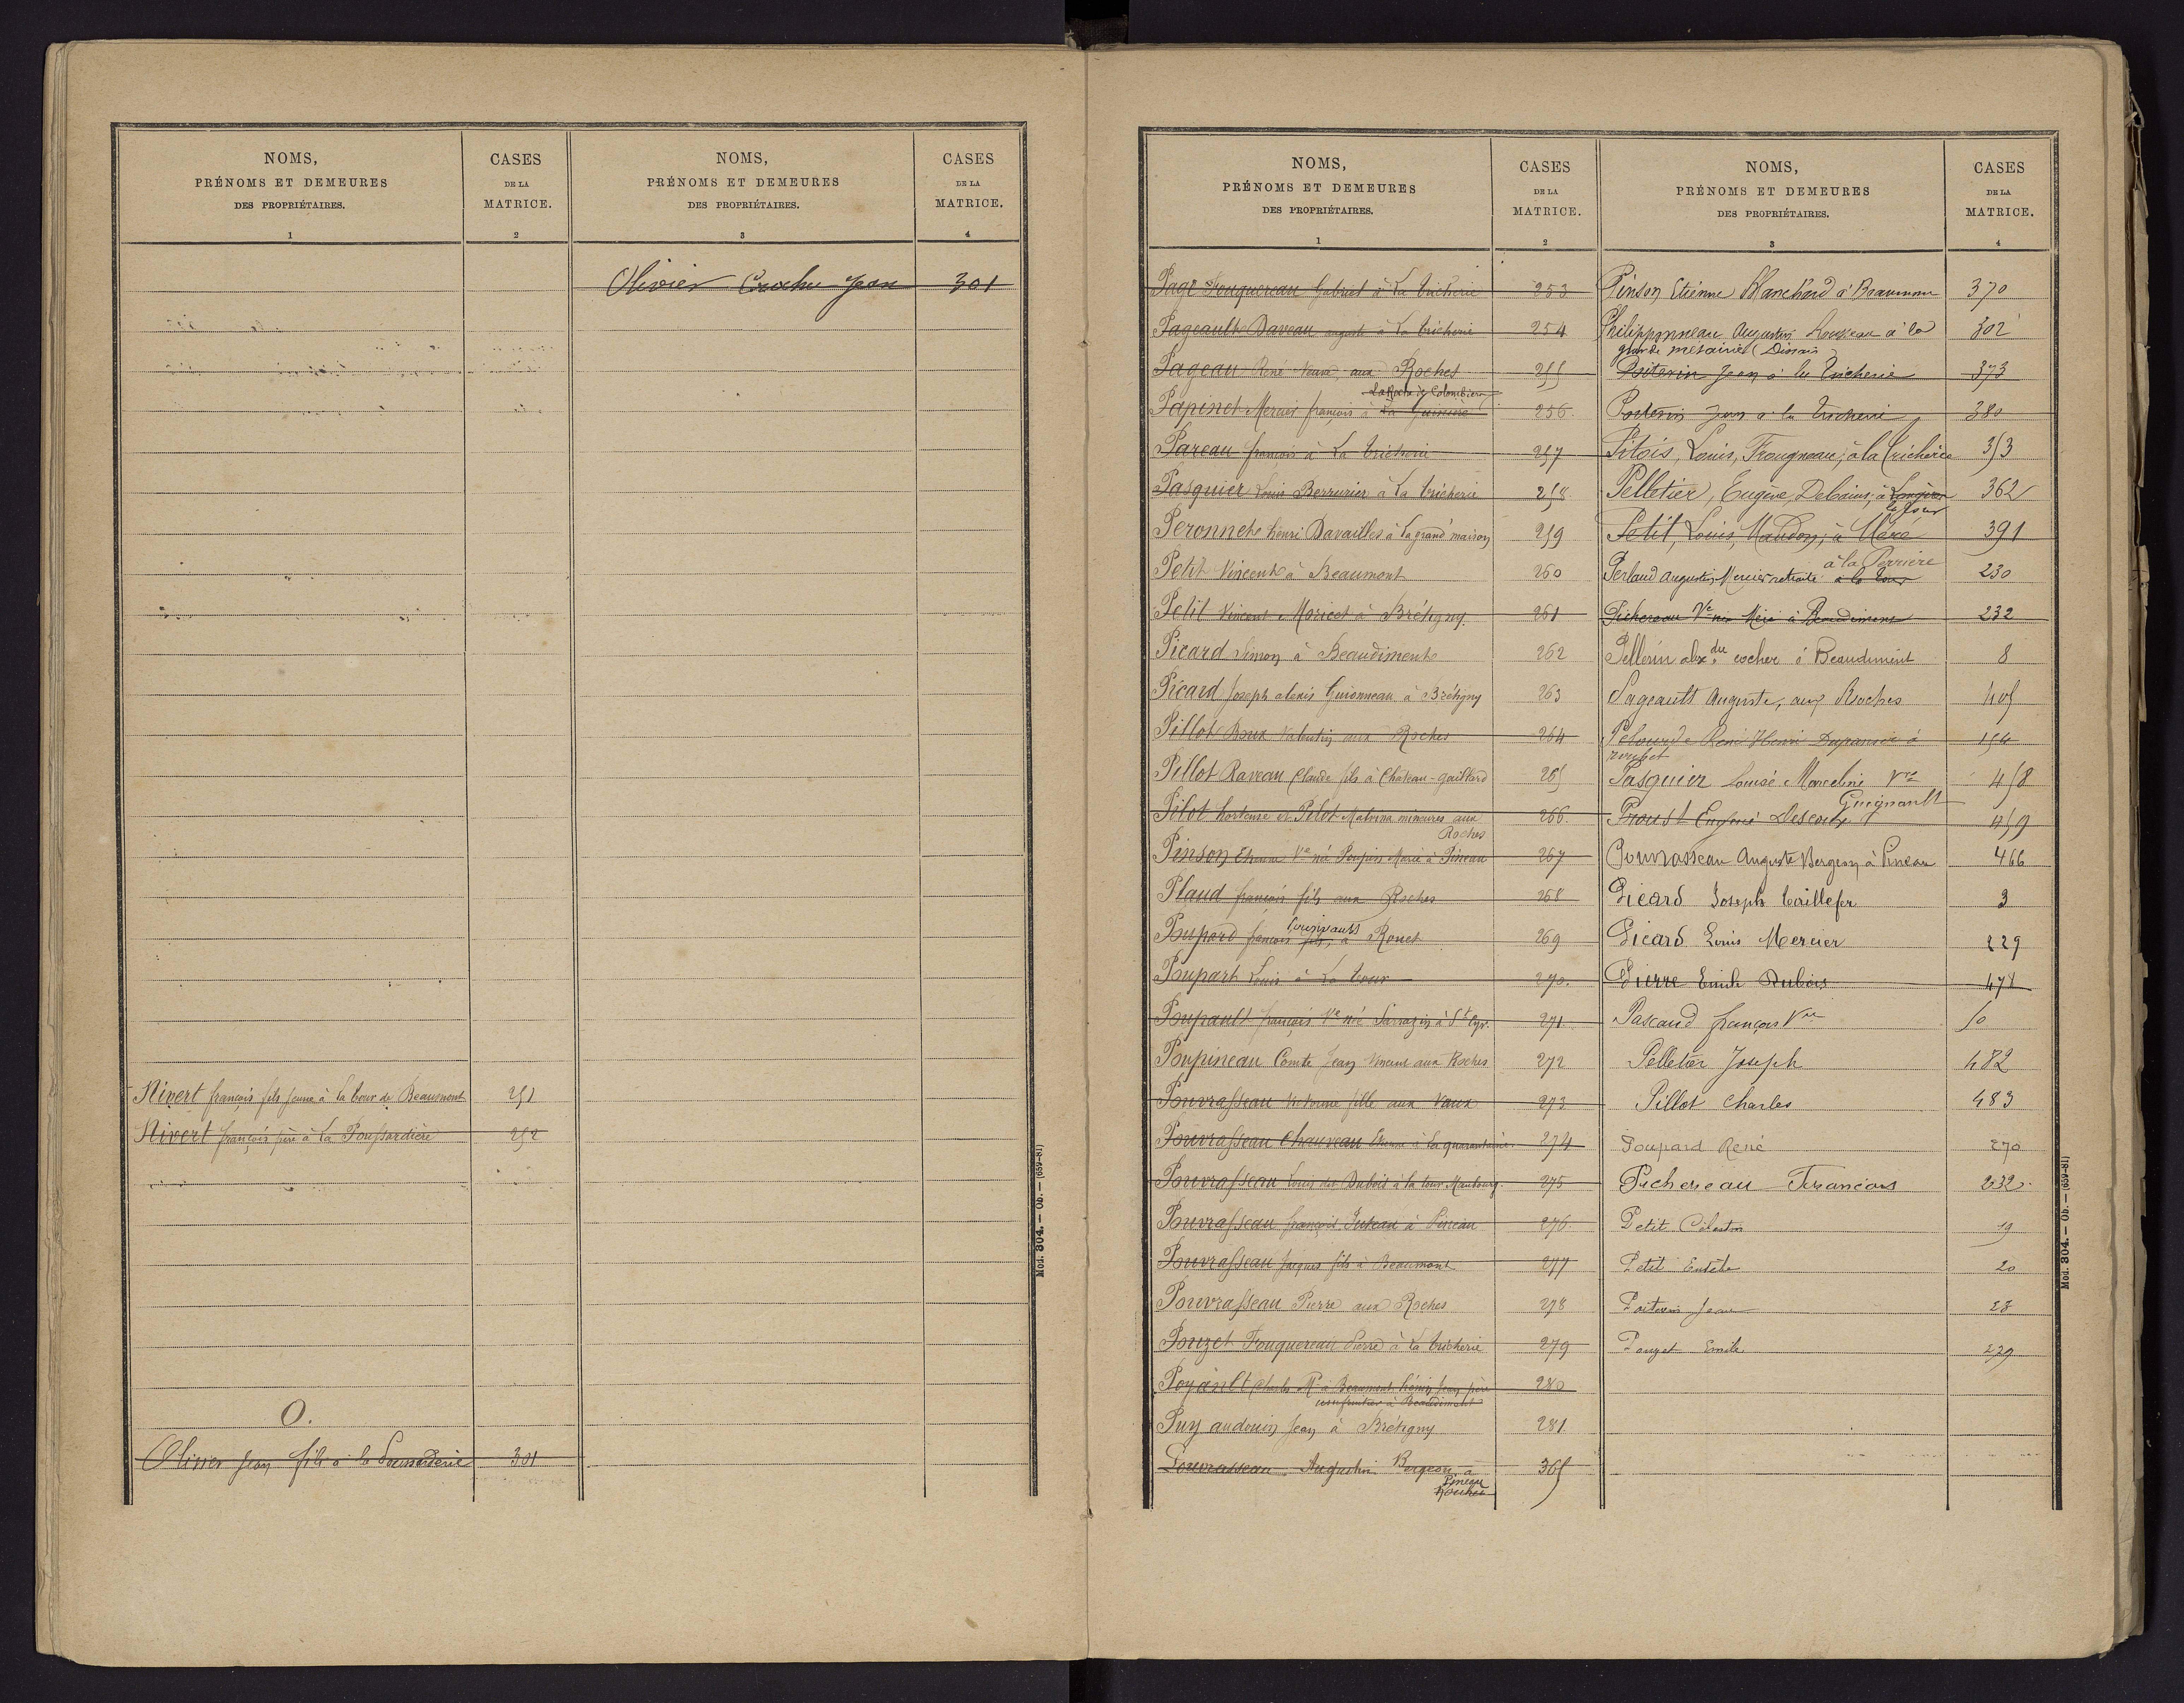 NOMS,
PRÉNOMS ET DEMEURES
DES PROPRIÉTAIRES.
1
CASES
DE LA
MATRICE.
2
NOMS,
PRÉNOMS ET DEMEURES
DES PROPRIÉTAIRES.
3
CASES
DE LA
MATRICE.
4
Nivert françois fils jeune à La tour de Beaumont 251
Nivert françois père à La Poussardière 252
O.
Olivier Jean fils à la 301
Olivier Crochu Jean 301
Mod. 304. — Ob. — (659-81)
NOMS,
PRÉNOMS ET DEMEURES
DES PROPRIÉTAIRES.
1
CASES
DE LA
MATRICE.
2
NOMS,
PRÉNOMS ET DEMEURES
DES PROPRIÉTAIRES.
3
CASES
DE LA
MATRICE.
4
Page Fouquereau Gabriel à La tricherie 253
Pageault Daveau auguste à La tricherie 254
Pageau René Veuve, aux Roches 255
La Roche de Colombiers
Papinet Mercier françois à La 256
Pareau françois à La tricherie 257
Pasquier Louis Berrurier à La tricherie 258
Peronnet henri Davailles à La grand maison 259
Petit Vincent à Beaumont 260
Petit Vincent Moricet à Brétigny 261
Picard Simon à Beaudiment 262
Picard Joseph alexis Guionneau à Brétigny 263
Pillot Roux Valentin aux Roches 264
Pillot Raveau Claude fils à Château-gaillard 265
Pilot hortense et Pilot Malvina mineures aux 266
Roches
Pinson Etienne Ve né Poupin Marie à Pineau 267
Plaud françois fils aux Roches 268
Poupard françois fils, à Rouet 269
Poupart Louis à La tour 270
Poupault françois Ve né Sarrazin à St Cyr. 271
Poupineau Comte Jean Vincent aux Roches 272
Pouvrasseau Victorine fille aux Vaux 273
Pouvrasseau Chauveau Etienne à La quarantaine 274
Pouvrasseau Louis dit Dubois à la tour Maubourg 275
Pouvrasseau françois Juteau à Pineau 276
Pouvrasseau Jacques fils à Beaumont 277
Pouvrasseau Pierre aux Roches 278
Pouzet Fouquereau Pierre à La tricherie 279
Poyault Charles Md à Beaumont Jean père 280
usufruitier à Beaudiment
Puy audouin Jean à Brétigny 281
Pouvrasseau Augustin Bergeon à 365
Pineau
Pinson Etienne Blanchard à Beaumont 370
Philipponneau Augustin Rousseau à la 302
grande métairie (Dissais)
Poitevin Jean à la Tricherie 373
Poitevin Jean à la Tricherie 380
Pitois, Louis, Frougneau, à la Tricherie 353
Pelletier, Eugène, Debains, à 362
Petit, Louis, Maudon, à Méré 391
à la Perrière
Perlaud Augustin Mercier retraité à la tour 230
Pichereau Ve née à Beaudiment 232
Pellerin alexdre cocher à Beaudiment 8
Pageault Auguste, aux Roches 405
Pelourde René Henri à 154
Pasquier Louise Marceline Vve 458
Guignault
Proust Eugène Descoutx 459
Pouvrasseau Auguste Bergeon à Pineau 466
Picard Joseph Taillefer 3
Picard Louis Mercier 229
Pierre Emile Dubois 478
Pascaud françois Vve 50
Pelletier Joseph 482
Pillot Charles 483
Poupard René 270
Pichereau Francois 232
Petit Célestin 19
Petit 20
Poitevin Jean 28
Pouzet Emile 279
Mod. 304. — Ob. — (659-81)